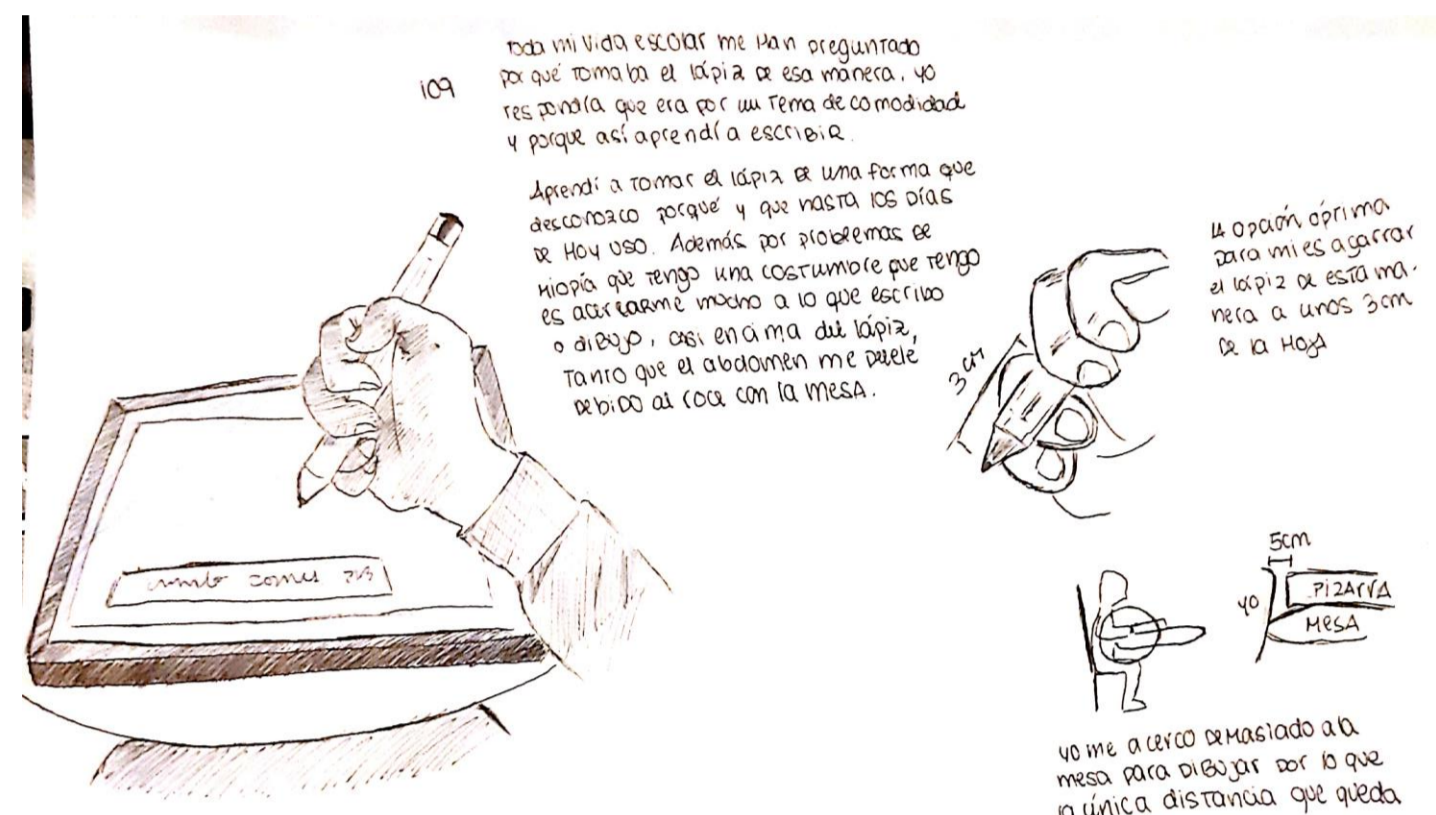 109
Toda mi vida escolar me Han preguntado
por qué tomaba el lápiz de esa manera. yo
respondía que era por un tema de comodidad
y porque así aprendí a escribir.
Aprendí a tomar el lápiz de una forma que
desconozco porqué y que hasta los días
de Hoy uso. Además por problemas de
miopía que tengo una costumbre que tengo
es acercarme mucho a lo que escribo
o dibujo, casi encima del lápiz,
tanto que el abdomen me duele
debido al roce con la mesa.
3 cm
LA opción óptima
para mi es agarrar
el lápiz de esta ma-
nera a unos 3 cm
de la Hoja
5cm
yo
PIZARRA
MESA
yo me acerco demasiado a la
mesa para dibujar por lo que
la única distancia que queda